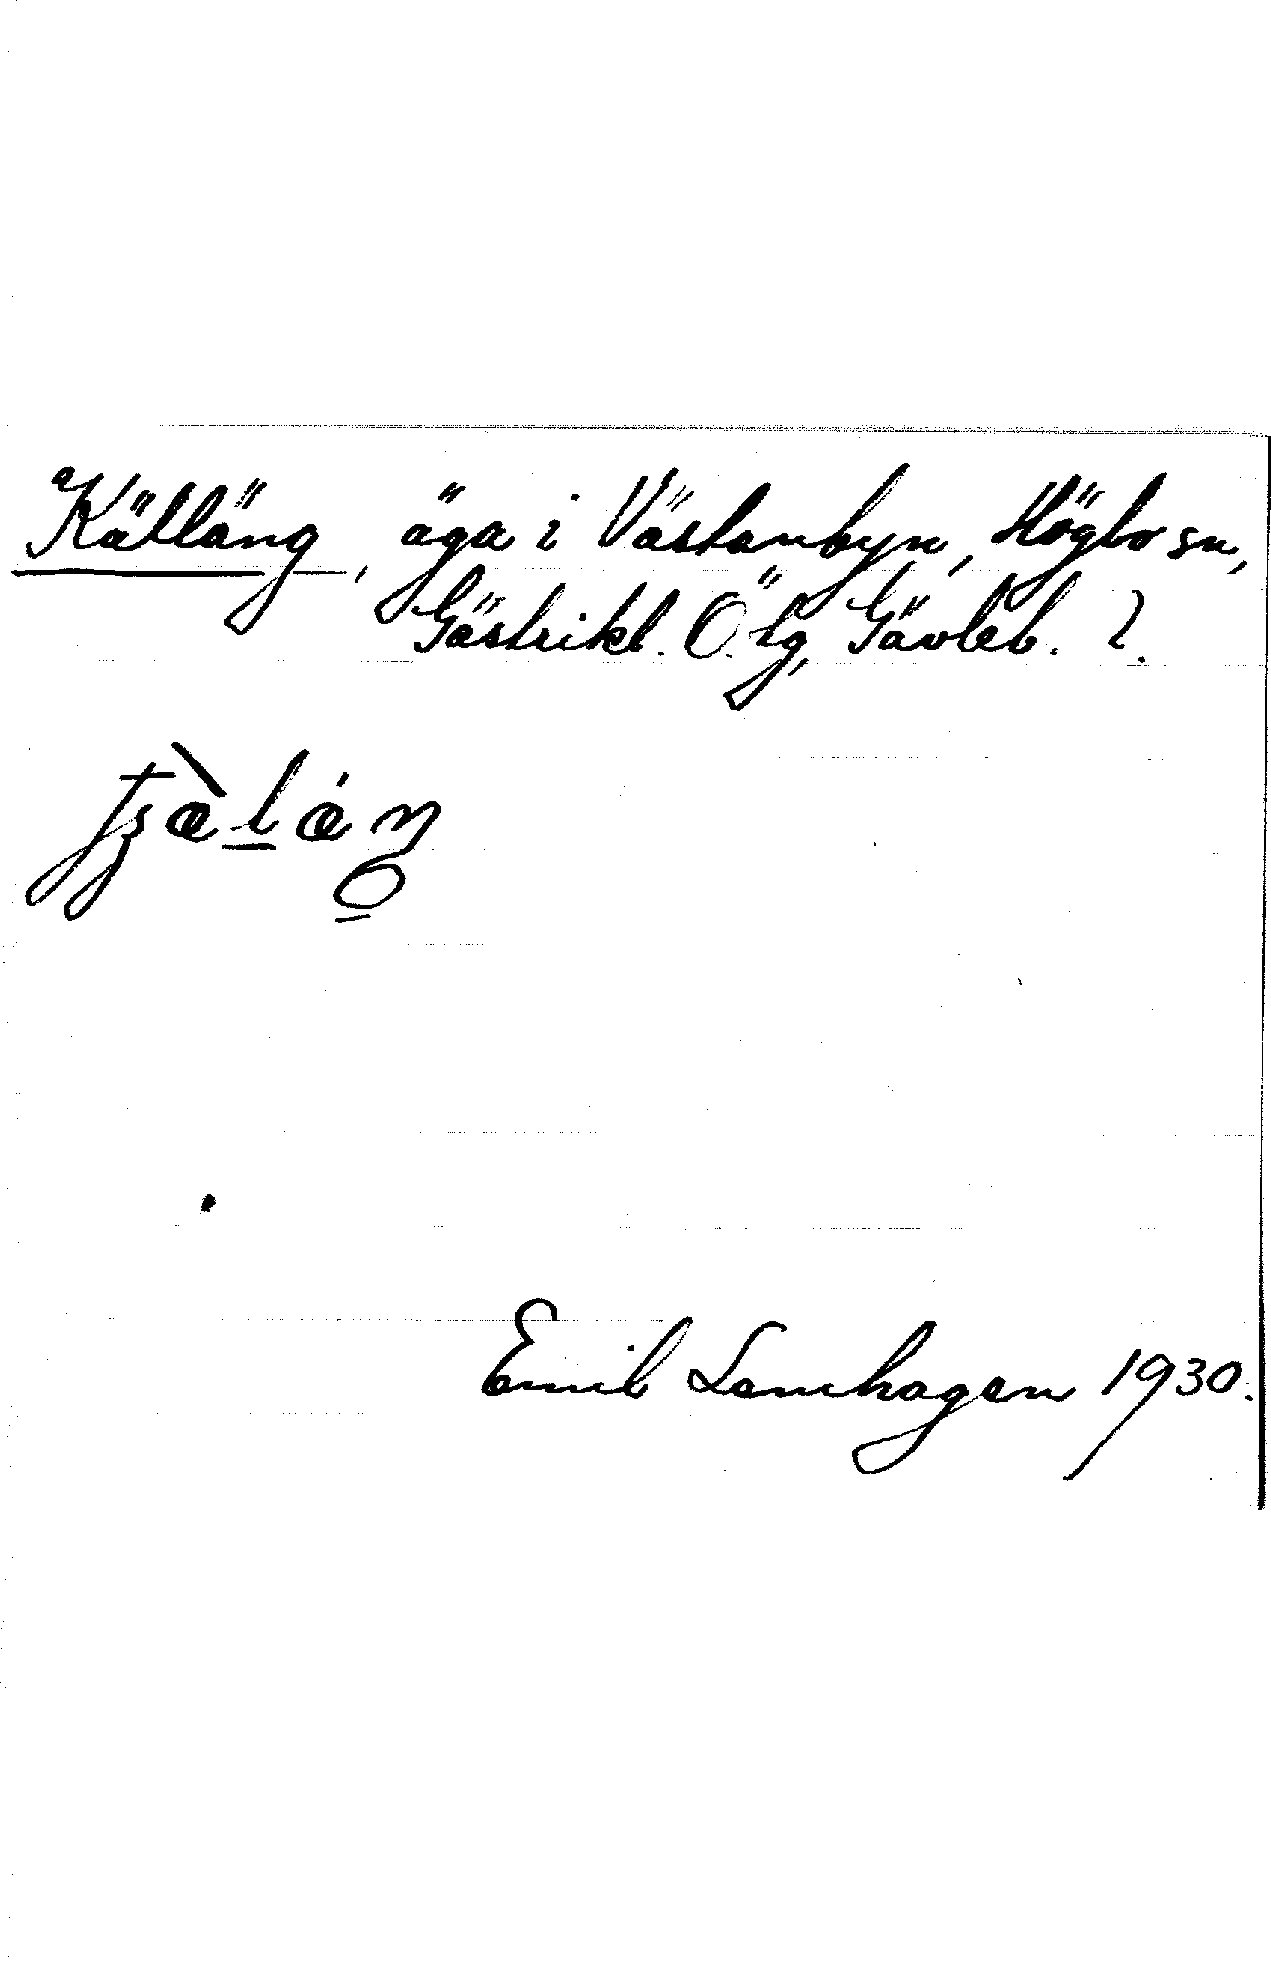 Källäng, äga i Västanbyn, Högbo sn,
Gästrikl. Ö. tg, Gävleb. l.
Emil Lamhagen 1930.